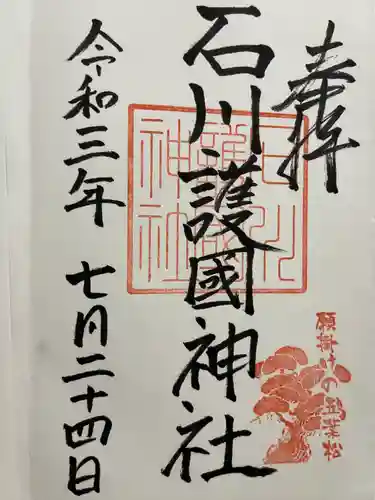 奉拝
石川護國神社
石川
護國
神社
令和三年 七月二十四日
願掛けの五葉松